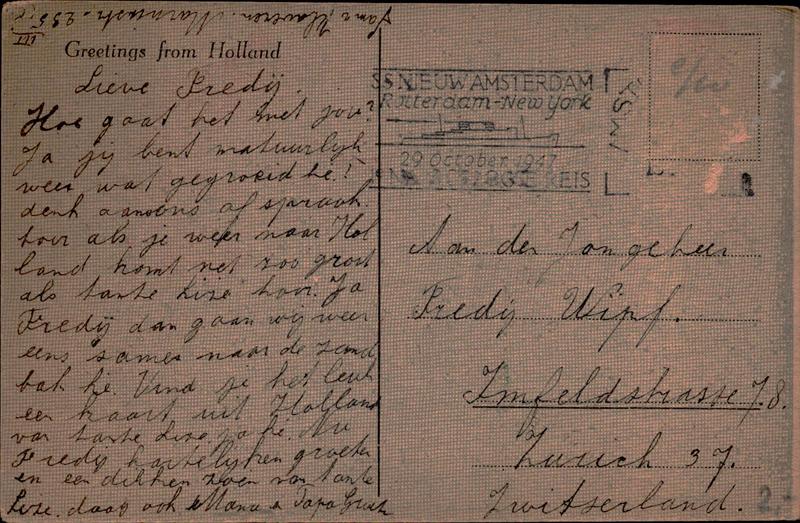 Greetings from Holland
Lieve Fredij.
Hoe gaat het met jou?
Ja jij bent natuurlijk
weer wat gegroeid he!
denk aan ons afspraak
hoor als je weer naar Hol
land komt net zoo groot
als tante Lize hoor. Ja
Fredij dan gaan wij weer
eens samen naar de zand
bak he. Vind je het leuk
een kaart uit Holland
van tante Lize, ja he. Nu
Fredij hartelijken groeten
en een dikken zoen van tante
Lize. daag ook Mama & Papa
S.S. NIEUW AMSTERDAM
Rotterdam-New York
29 October 1947
REIS
Aan den Jongeheer
Fredij Wipf.
Imfeldstrasse 78.
Zurich 37.
Zwitserland.